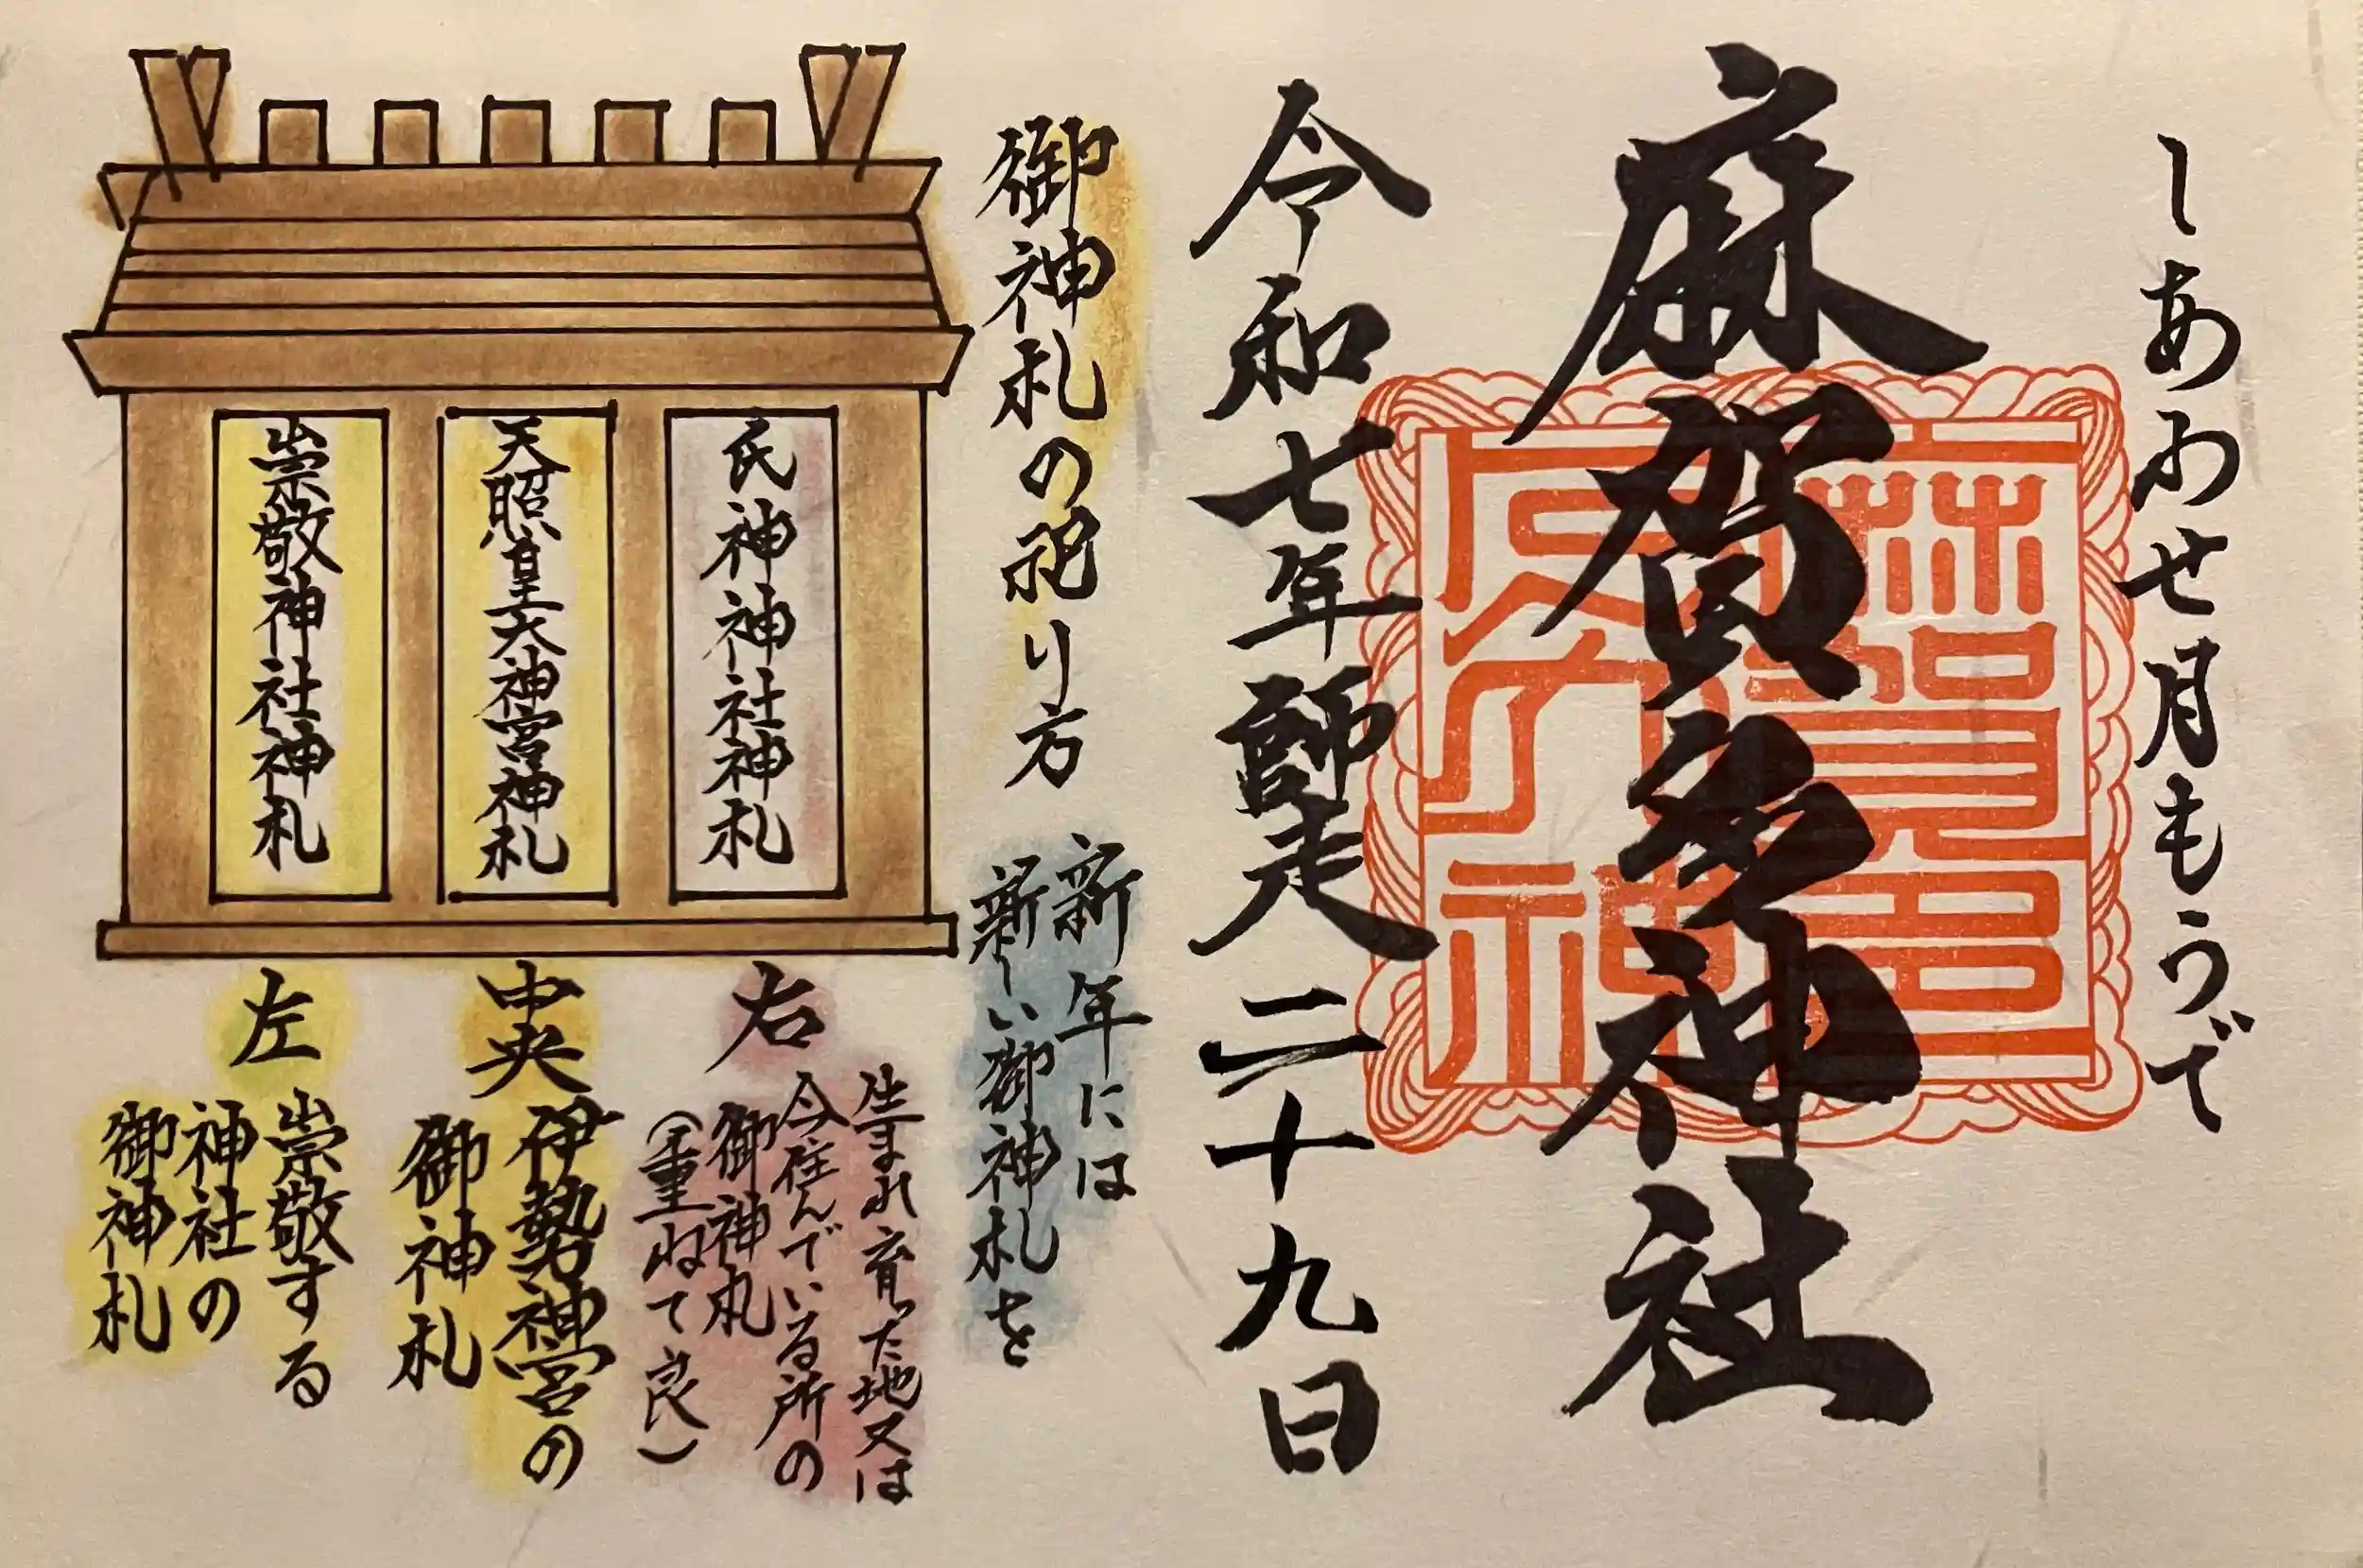 しあわせ月もうで
麻賀多神社
令和七年師走二十九日
御神札の祀り方
新年には
新しい御神札を
氏神神社神札
天照皇大神宮神札
崇敬神社神札
右
生まれ育った地又は
今住んでいる所の
御神札
（重ねて良）
中央
伊勢神宮の
御神札
左
崇敬する
神社の
御神札